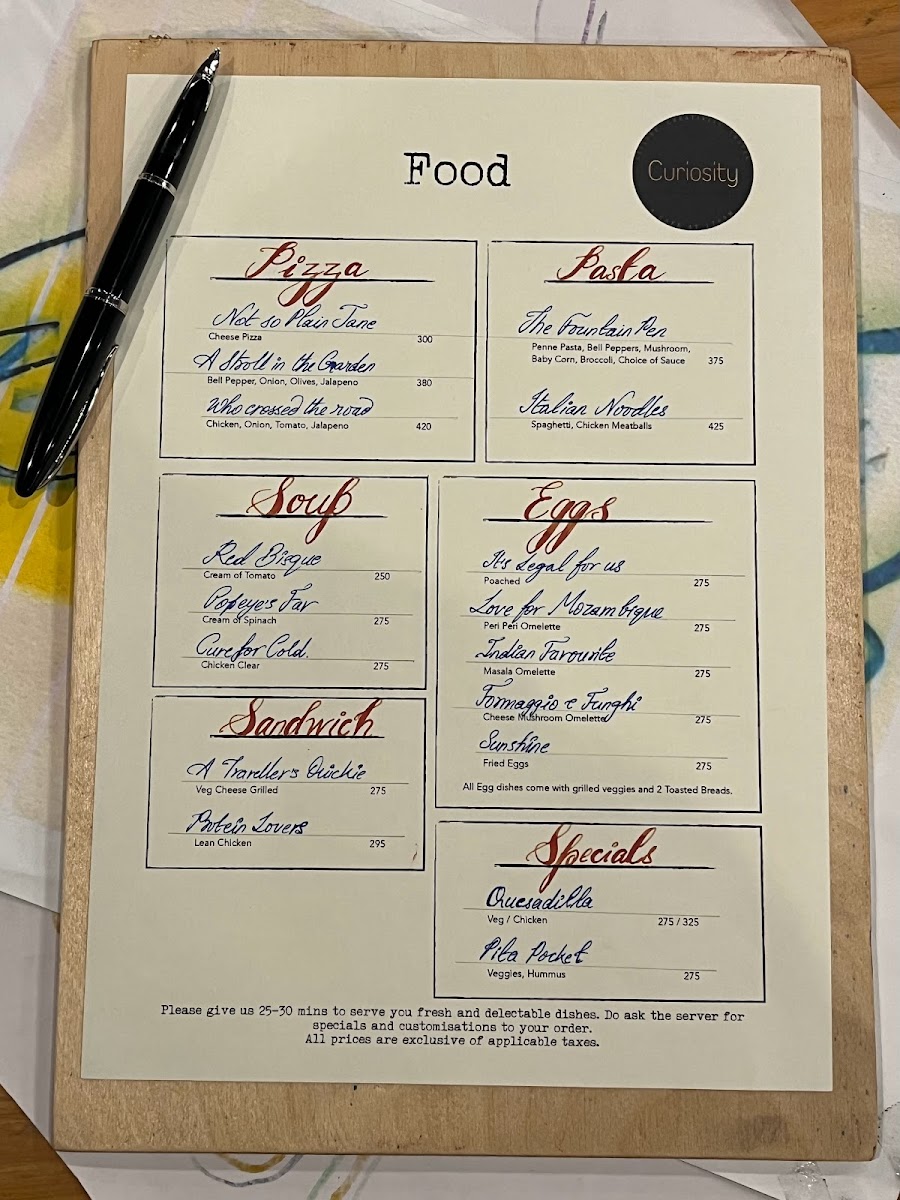 Food
Curiosity
Pizza
Not so Plain Jane
Cheese Pizza 300
A Stroll in the Garden
Bell Pepper, Onion, Olives, Jalapeno 380
Who crossed the road
Chicken, Onion, Tomato, Jalapeno 420
Pasta
The Fountain Pen
Penne Pasta, Bell Peppers, Mushroom,
Baby Corn, Broccoli, Choice of Sauce 375
Italian Noodles
Spaghetti, Chicken Meatballs 425
Soup
Red Bisque
Cream of Tomato 250
Popeye's Fav
Cream of Spinach 275
Cure for Cold.
Chicken Clear 275
Eggs
It's Legal for us
Poached 275
Love for Mozambique
Peri Peri Omelette 275
Indian Favourite
Masala Omelette 275
Formaggio e Funghi
Cheese Mushroom Omelette 275
Sunshine
Fried Eggs 275
All Egg dishes come with grilled veggies and 2 Toasted Breads.
Sandwich
A Traveller's Quickie
Veg Cheese Grilled 275
Protein Lovers
Lean Chicken 295
Specials
Quesadilla
Veg / Chicken 275 / 325
Pita Pocket
Veggies, Hummus 275
Please give us 25-30 mins to serve you fresh and delectable dishes. Do ask the server for
specials and customisations to your order.
All prices are exclusive of applicable taxes.